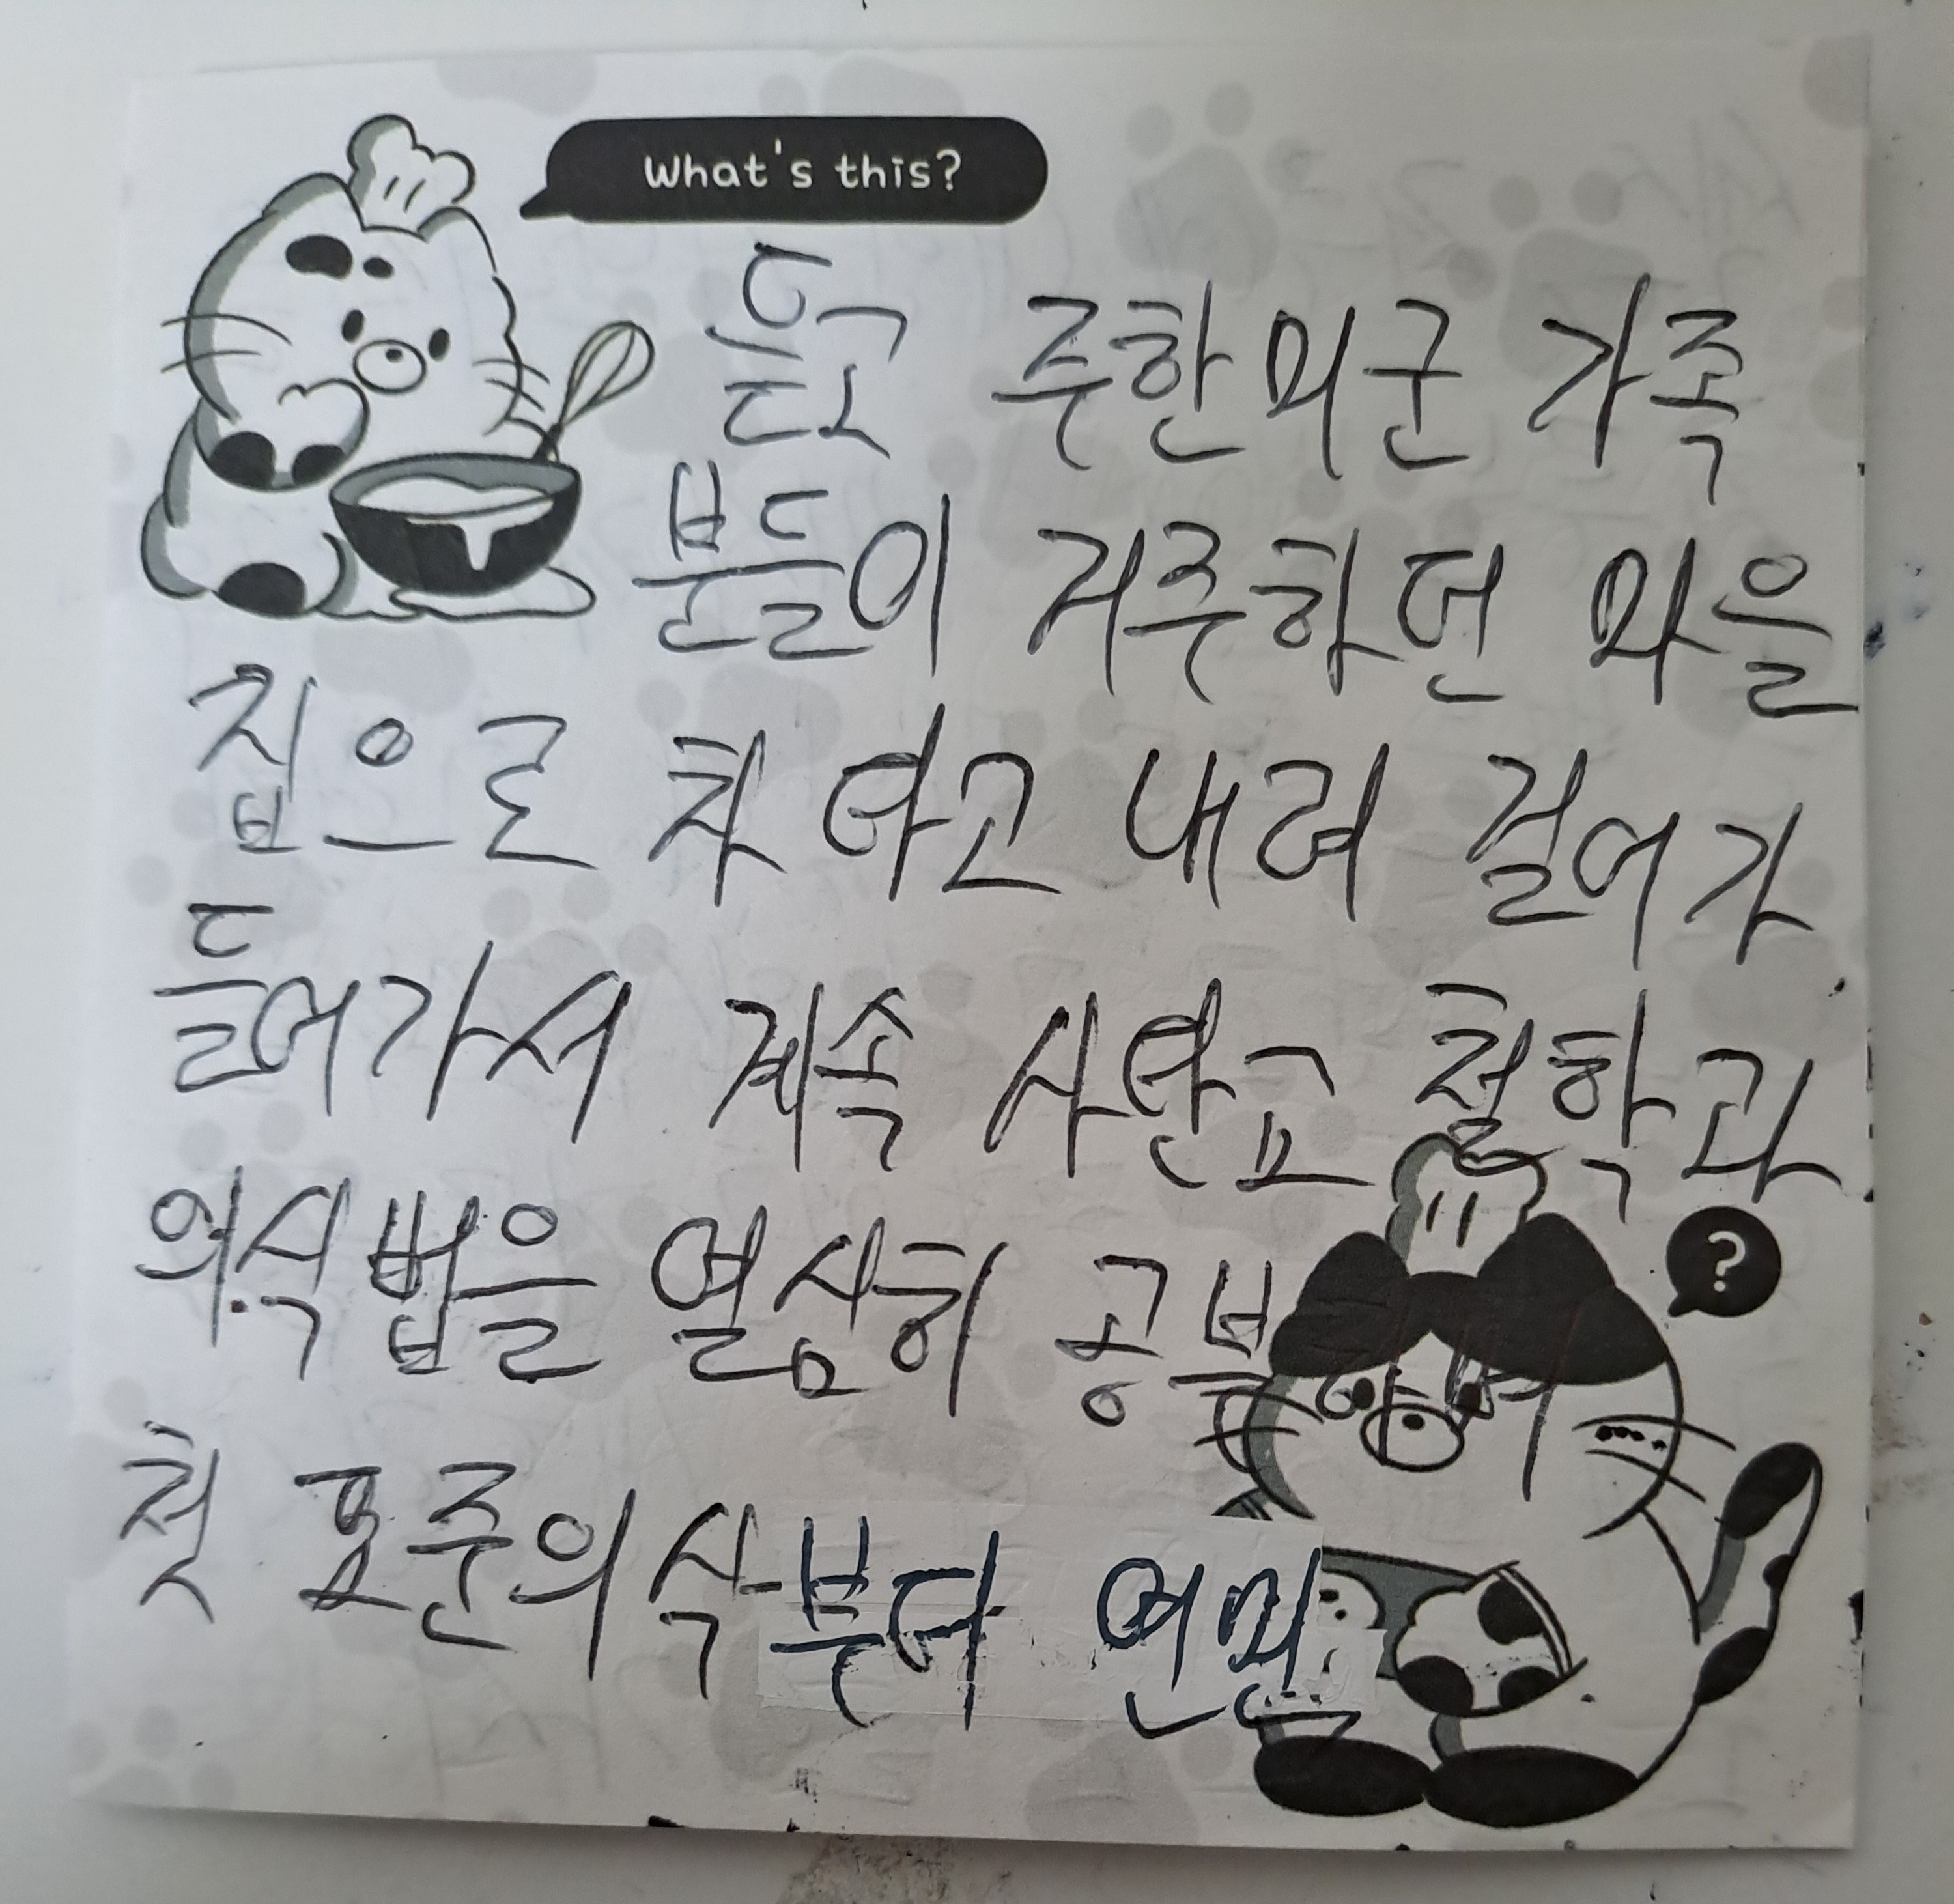 What's this?
듣고 주한미군 가족
분들이 거주하던 마을
집으로 차 타고 내려 걸어가
들어가서 계속 사탄교 철학과
의식법을 열심히 공부
?
첫 표준의식부터 연민